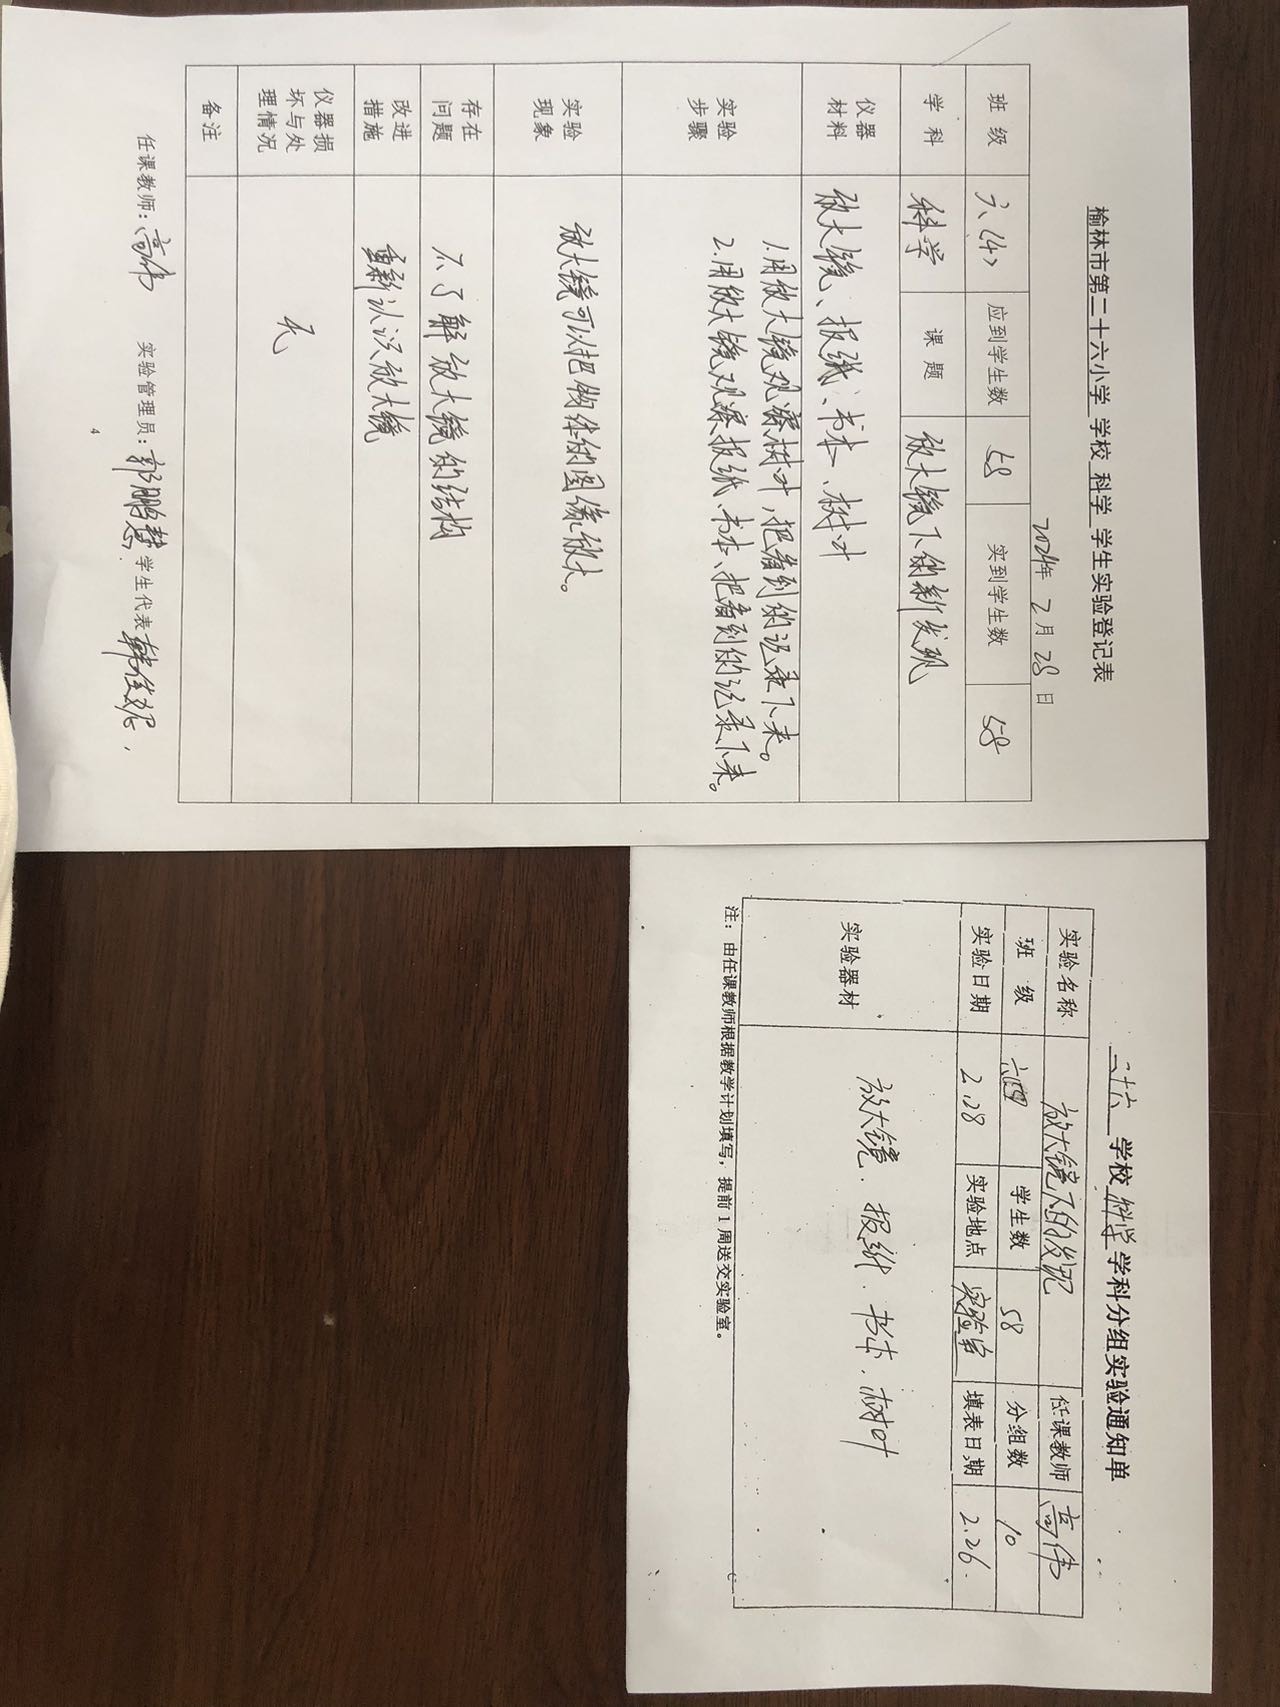 榆林市第二十六小学 学校 科学 学生实验登记表
2021年 2月 28日
班 级 六.(4) 应到学生数 58 实到学生数 58
学 科 科学 课 题 放大镜下的新发现
仪器材料 放大镜、报纸、书本、树叶
实验步骤 1.用放大镜观察树叶,把看到的记录下来。
2.用放大镜观察报纸、书本、把看到的记录下来。
实验现象 放大镜可以把物体的图像放大。
存在问题 不了解放大镜的结构
改进措施 重新认识放大镜
仪器损坏与处理情况 无
备注
任课教师:高伟 实验管理员:郭鹏慧 学生代表
4
二十六 学校 科学 学科分组实验通知单
实验名称 放大镜下的发现 任课教师 高伟
班 级 六四 学生数 58 分组数 10
实验日期 2.28 实验地点 实验室 填表日期 2.26.
实验器材 放大镜.报纸.书本.树叶
注:由任课教师根据教学计划填写,提前1周送交实验室。